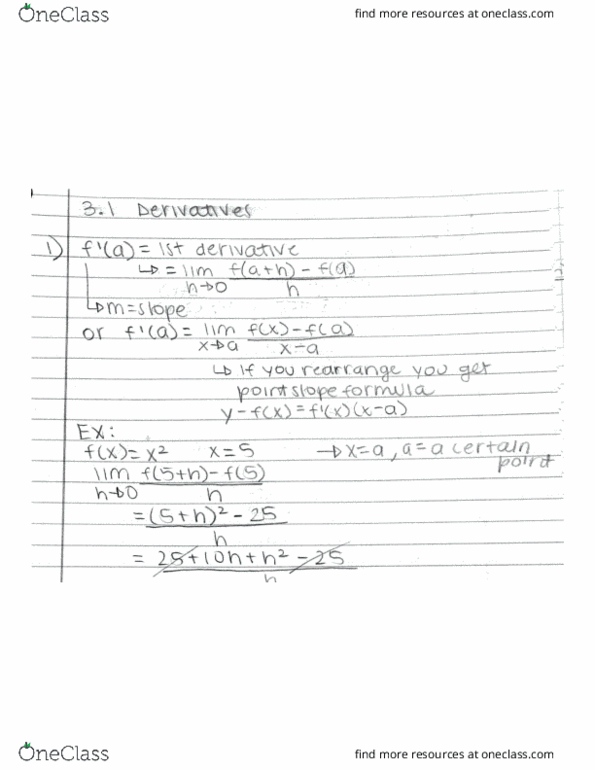 OneClass
find more resources at oneclass.com
3.1 Derivatives
1) f'(a) = 1st derivative
↳ = lim f(a+h) - f(a)
h→0 h
↳ m=slope
or f'(a) = lim f(x) - f(a)
x→a x-a
↳ If you rearrange you get
point slope formula
y-f(x) = f'(x)(x-a)
EX:
f(x) = x² x=5 → x=a, a=a certain
point
lim f(5+h) - f(5)
h→0 h
= (5+h)² - 25
h
= 25+10h+h² - 25
h
OneClass
find more resources at oneclass.com